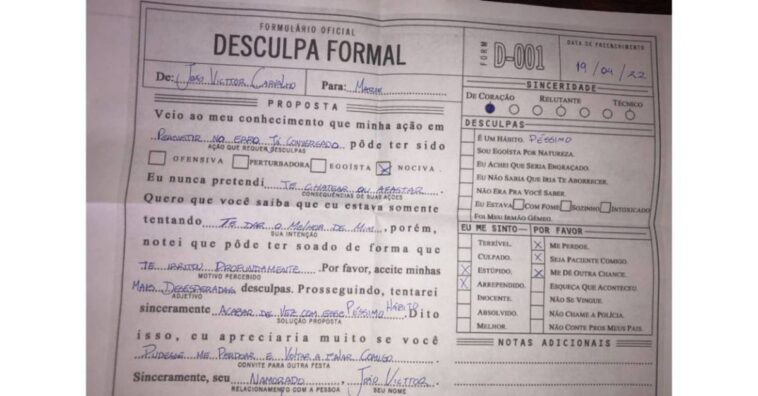 FORMULÁRIO OFICIAL
DESCULPA FORMAL
FORM
D-001
DATA DE PREENCHIMENTO
19/04/22
De: João Victtor Carvalho Para:
PROPOSTA
Veio ao meu conhecimento que minha ação em
no erro já conversado pôde ter sido
AÇÃO QUE REQUER DESCULPAS
OFENSIVA PERTURBADORA EGOÍSTA X NOCIVA.
Eu nunca pretendi te chatear ou afastar.
CONSEQUÊNCIAS DE SUAS AÇÕES
Quero que você saiba que eu estava somente
tentando te dar o melhor de mim, porém,
SUA INTENÇÃO
notei que pôde ter soado de forma que
te irritou profundamente. Por favor, aceite minhas
MOTIVO PERCEBIDO
mais desesperadas desculpas. Prosseguindo, tentarei
ADJETIVO
sinceramente acabar de vez com esse péssimo hábito. Dito
SOLUÇÃO PROPOSTA
isso, eu apreciaria muito se você
pudesse me perdoar e voltar a comigo
CONVITE PARA OUTRA FESTA
Sinceramente, seu namorado, João Victtor.
RELACIONAMENTO COM A PESSOA SEU NOME
SINCERIDADE
DE CORAÇÃO RELUTANTE TÉCNICO
DESCULPAS
É UM HÁBITO. PÉSSIMO
SOU EGOÍSTA POR NATUREZA.
EU ACHEI QUE SERIA ENGRAÇADO.
EU NÃO SABIA QUE IRIA TE ABORRECER.
NÃO ERA PRA VOCÊ SABER.
EU ESTAVA COM FOME SOZINHO INTOXICADO
FOI MEU IRMÃO GÊMEO.
EU ME SINTO POR FAVOR
TERRÍVEL. X ME PERDOE.
CULPADO. X SEJA PACIENTE COMIGO.
X ESTÚPIDO. X ME DÊ OUTRA CHANCE.
X ARREPENDIDO. ESQUEÇA QUE ACONTECEU.
INOCENTE. NÃO SE VINGUE.
ABSOLVIDO. NÃO CHAME A POLÍCIA.
MELHOR. NÃO CONTE PROS MEUS PAIS.
NOTAS ADICIONAIS